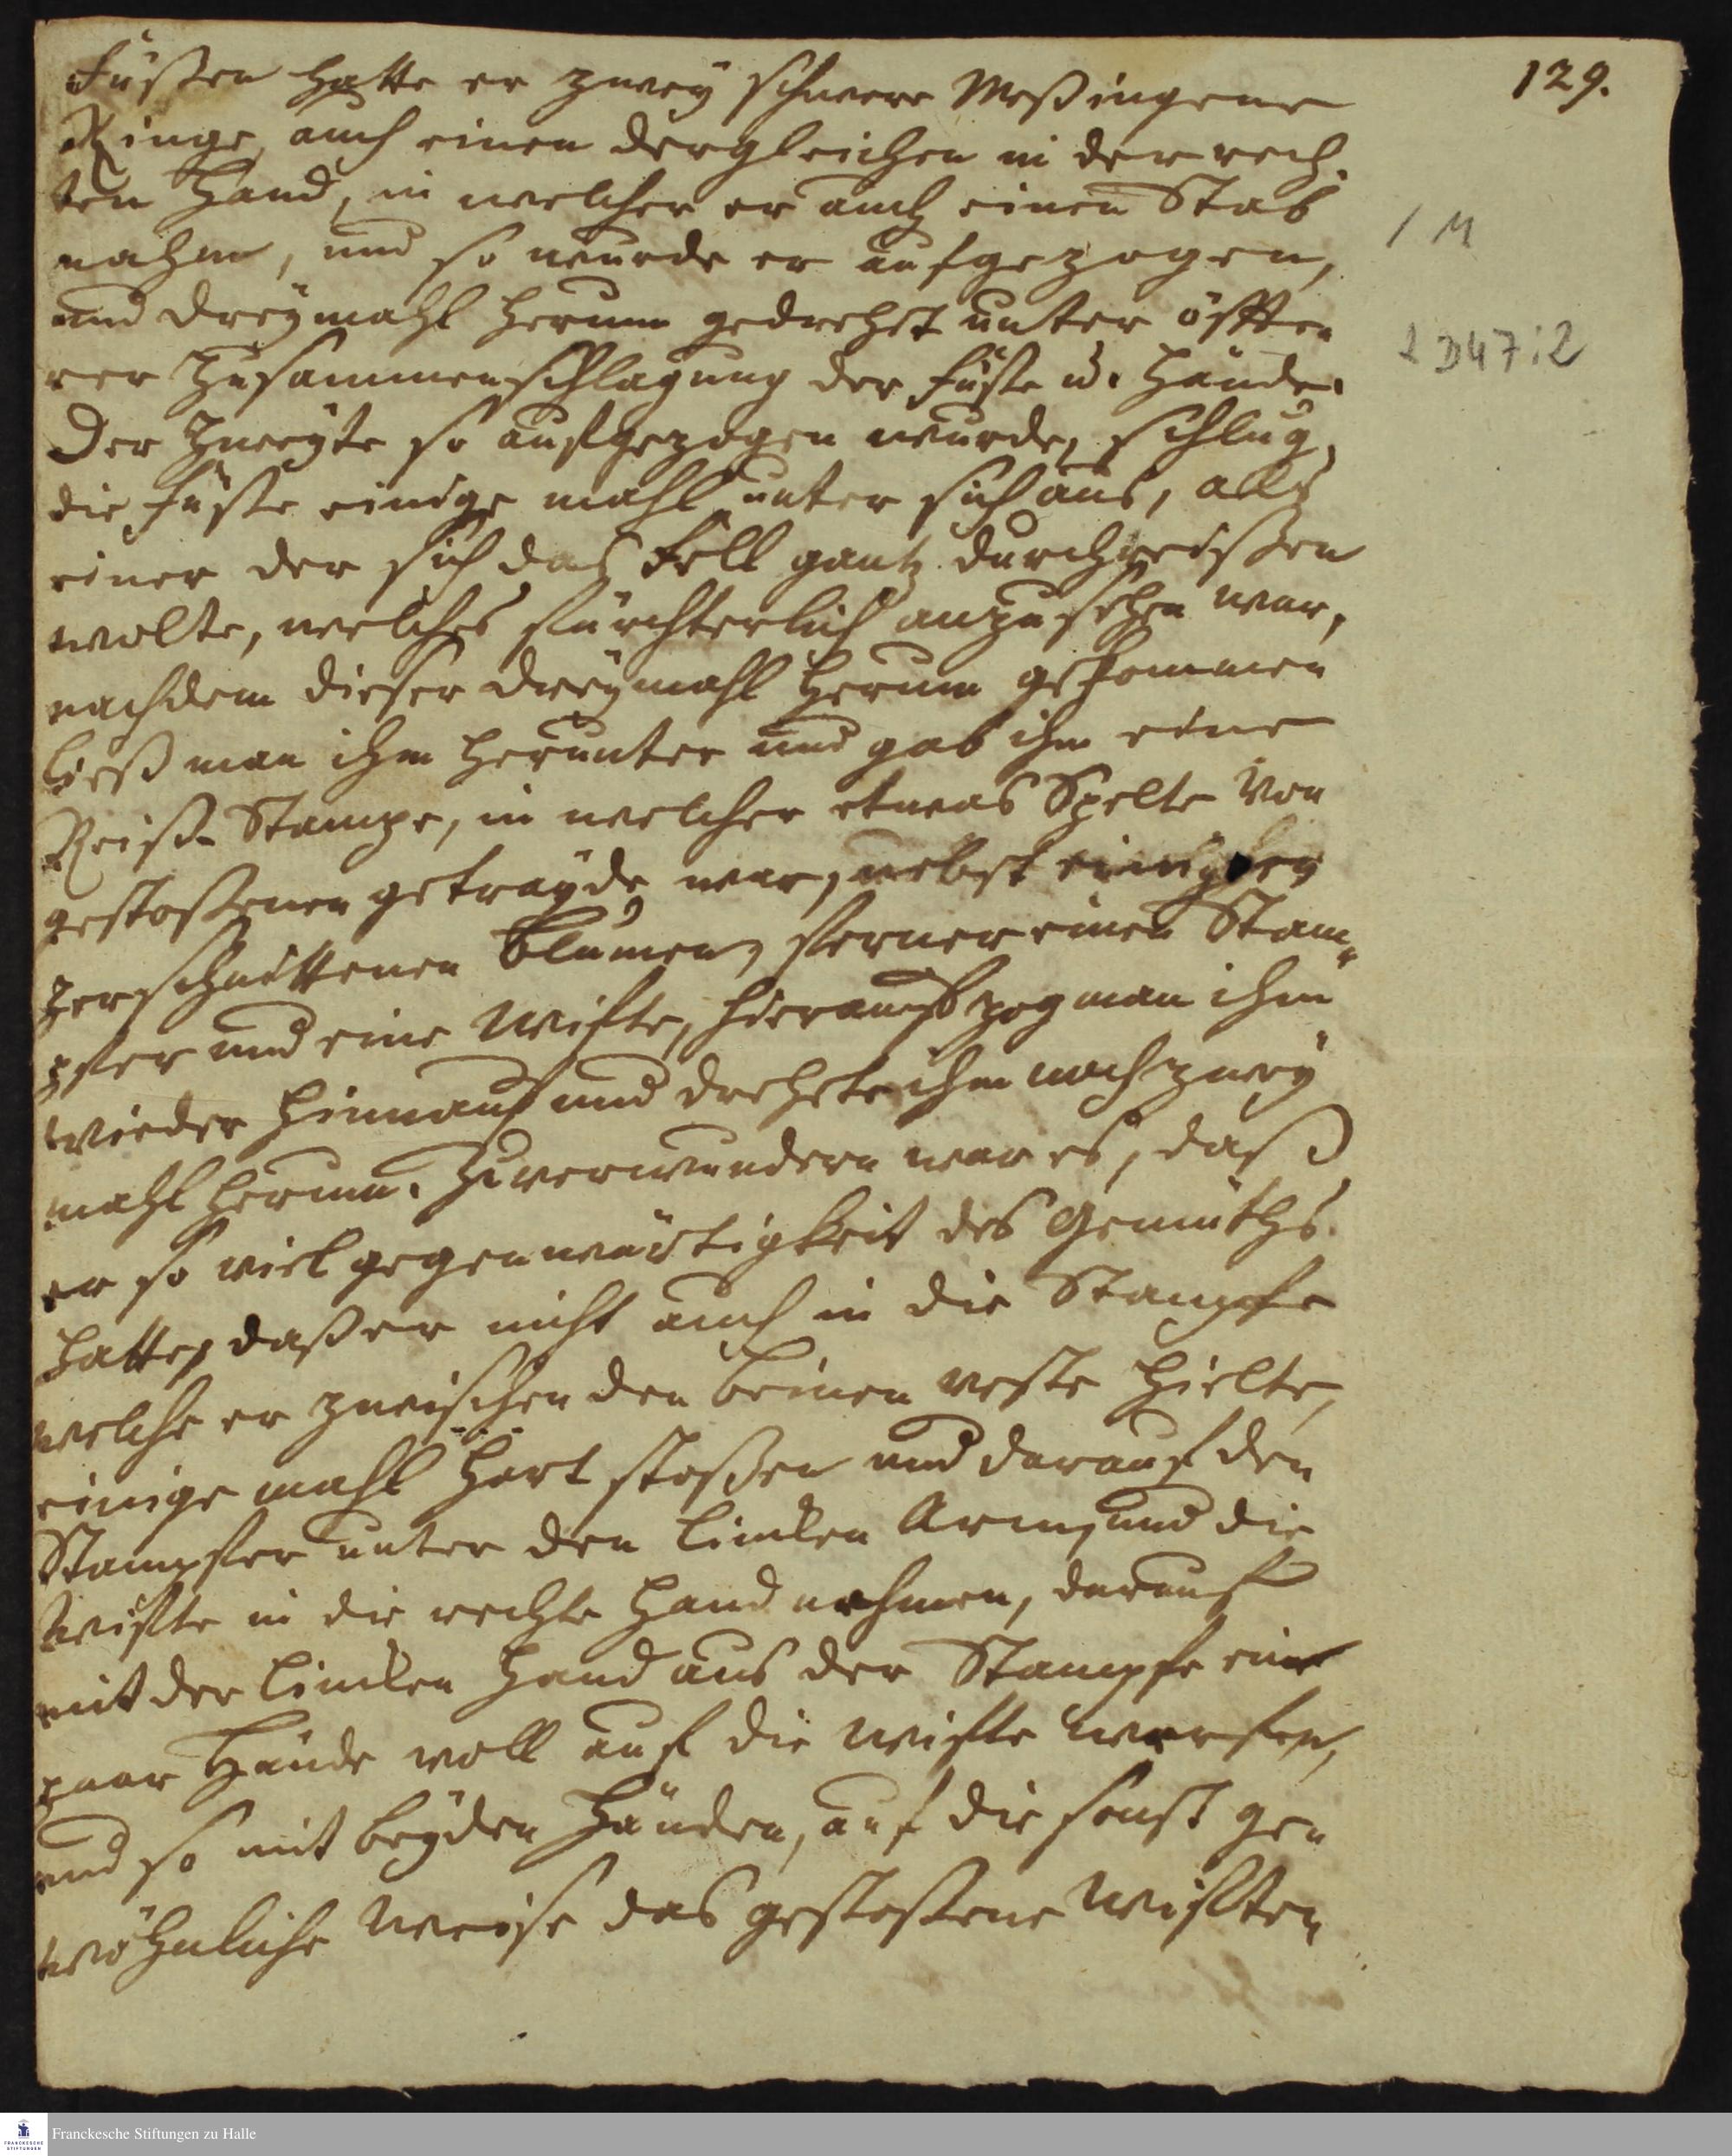 129.
Füßen hatte er zweÿ schwere Meßingene
Ringe, auch einen dergleichen in der rech-
ten Hand, in welcher er auch einen Stab
nahm, und so wurde er aufgezogen,
und dreÿmahl herum gedrehet unter öfte-
rer Zusammenschlagung der Füße u. Hände.
Der Zweÿte so aufgezogen wurde, schlug
die Füße einige mahl unter sich aus, als
einer der sich das Fell gantz durchreißen
wolte, welches fürchterlich anzusehen war,
nachdem dieser dreÿmahl herum gekommen
ließ man ihm herunter und gab ihm eine
Reiß-Stampe, in welcher etwas Spelte von
gestoßenen geträÿde war, nebst einigen
zerschnittenen Blumen, ferner einen Stam-
pfer und eine Wifte, hierauf zog man ihm
wieder hinnauf und drehete ihm noch zweÿ
mahl herum. Zuverwundern war es, daß
er so viel gegenwärtigkeit des Gemüths
hatte, daß er nicht auch in die Stampfe
welche er zwischen den beinen veste hielte,
einige mahl hart stoßen und darauf den
Stampfer unter den lincken Arm, und die
Wifte in die rechte Hand nehmen, darauf
mit der lincken Hand aus der Stampfe eine
paar Hände voll auf die Wifte werfen,
und so mit beÿden Händen, auf die sonst ge-
wöhnliche Weise das gestoßene Wiften
1 M
2 D47:2
Franckesche Stiftungen zu Halle
FRANCKESCHE
STIFTUNGEN